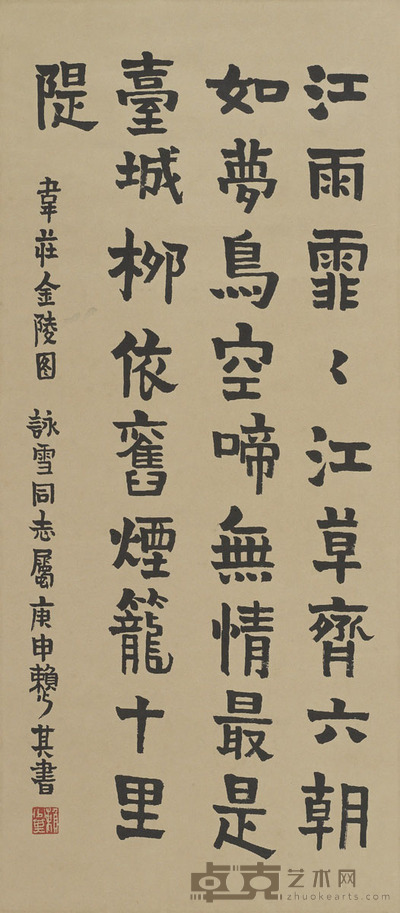 江雨霏〻江草齊六朝
如夢鳥空啼無情最是
臺城柳依舊煙籠十里
隄
韋莊金陵图 詠雪同志屬庚申賴少其書
卓克艺术网
www.zhuokearts.com